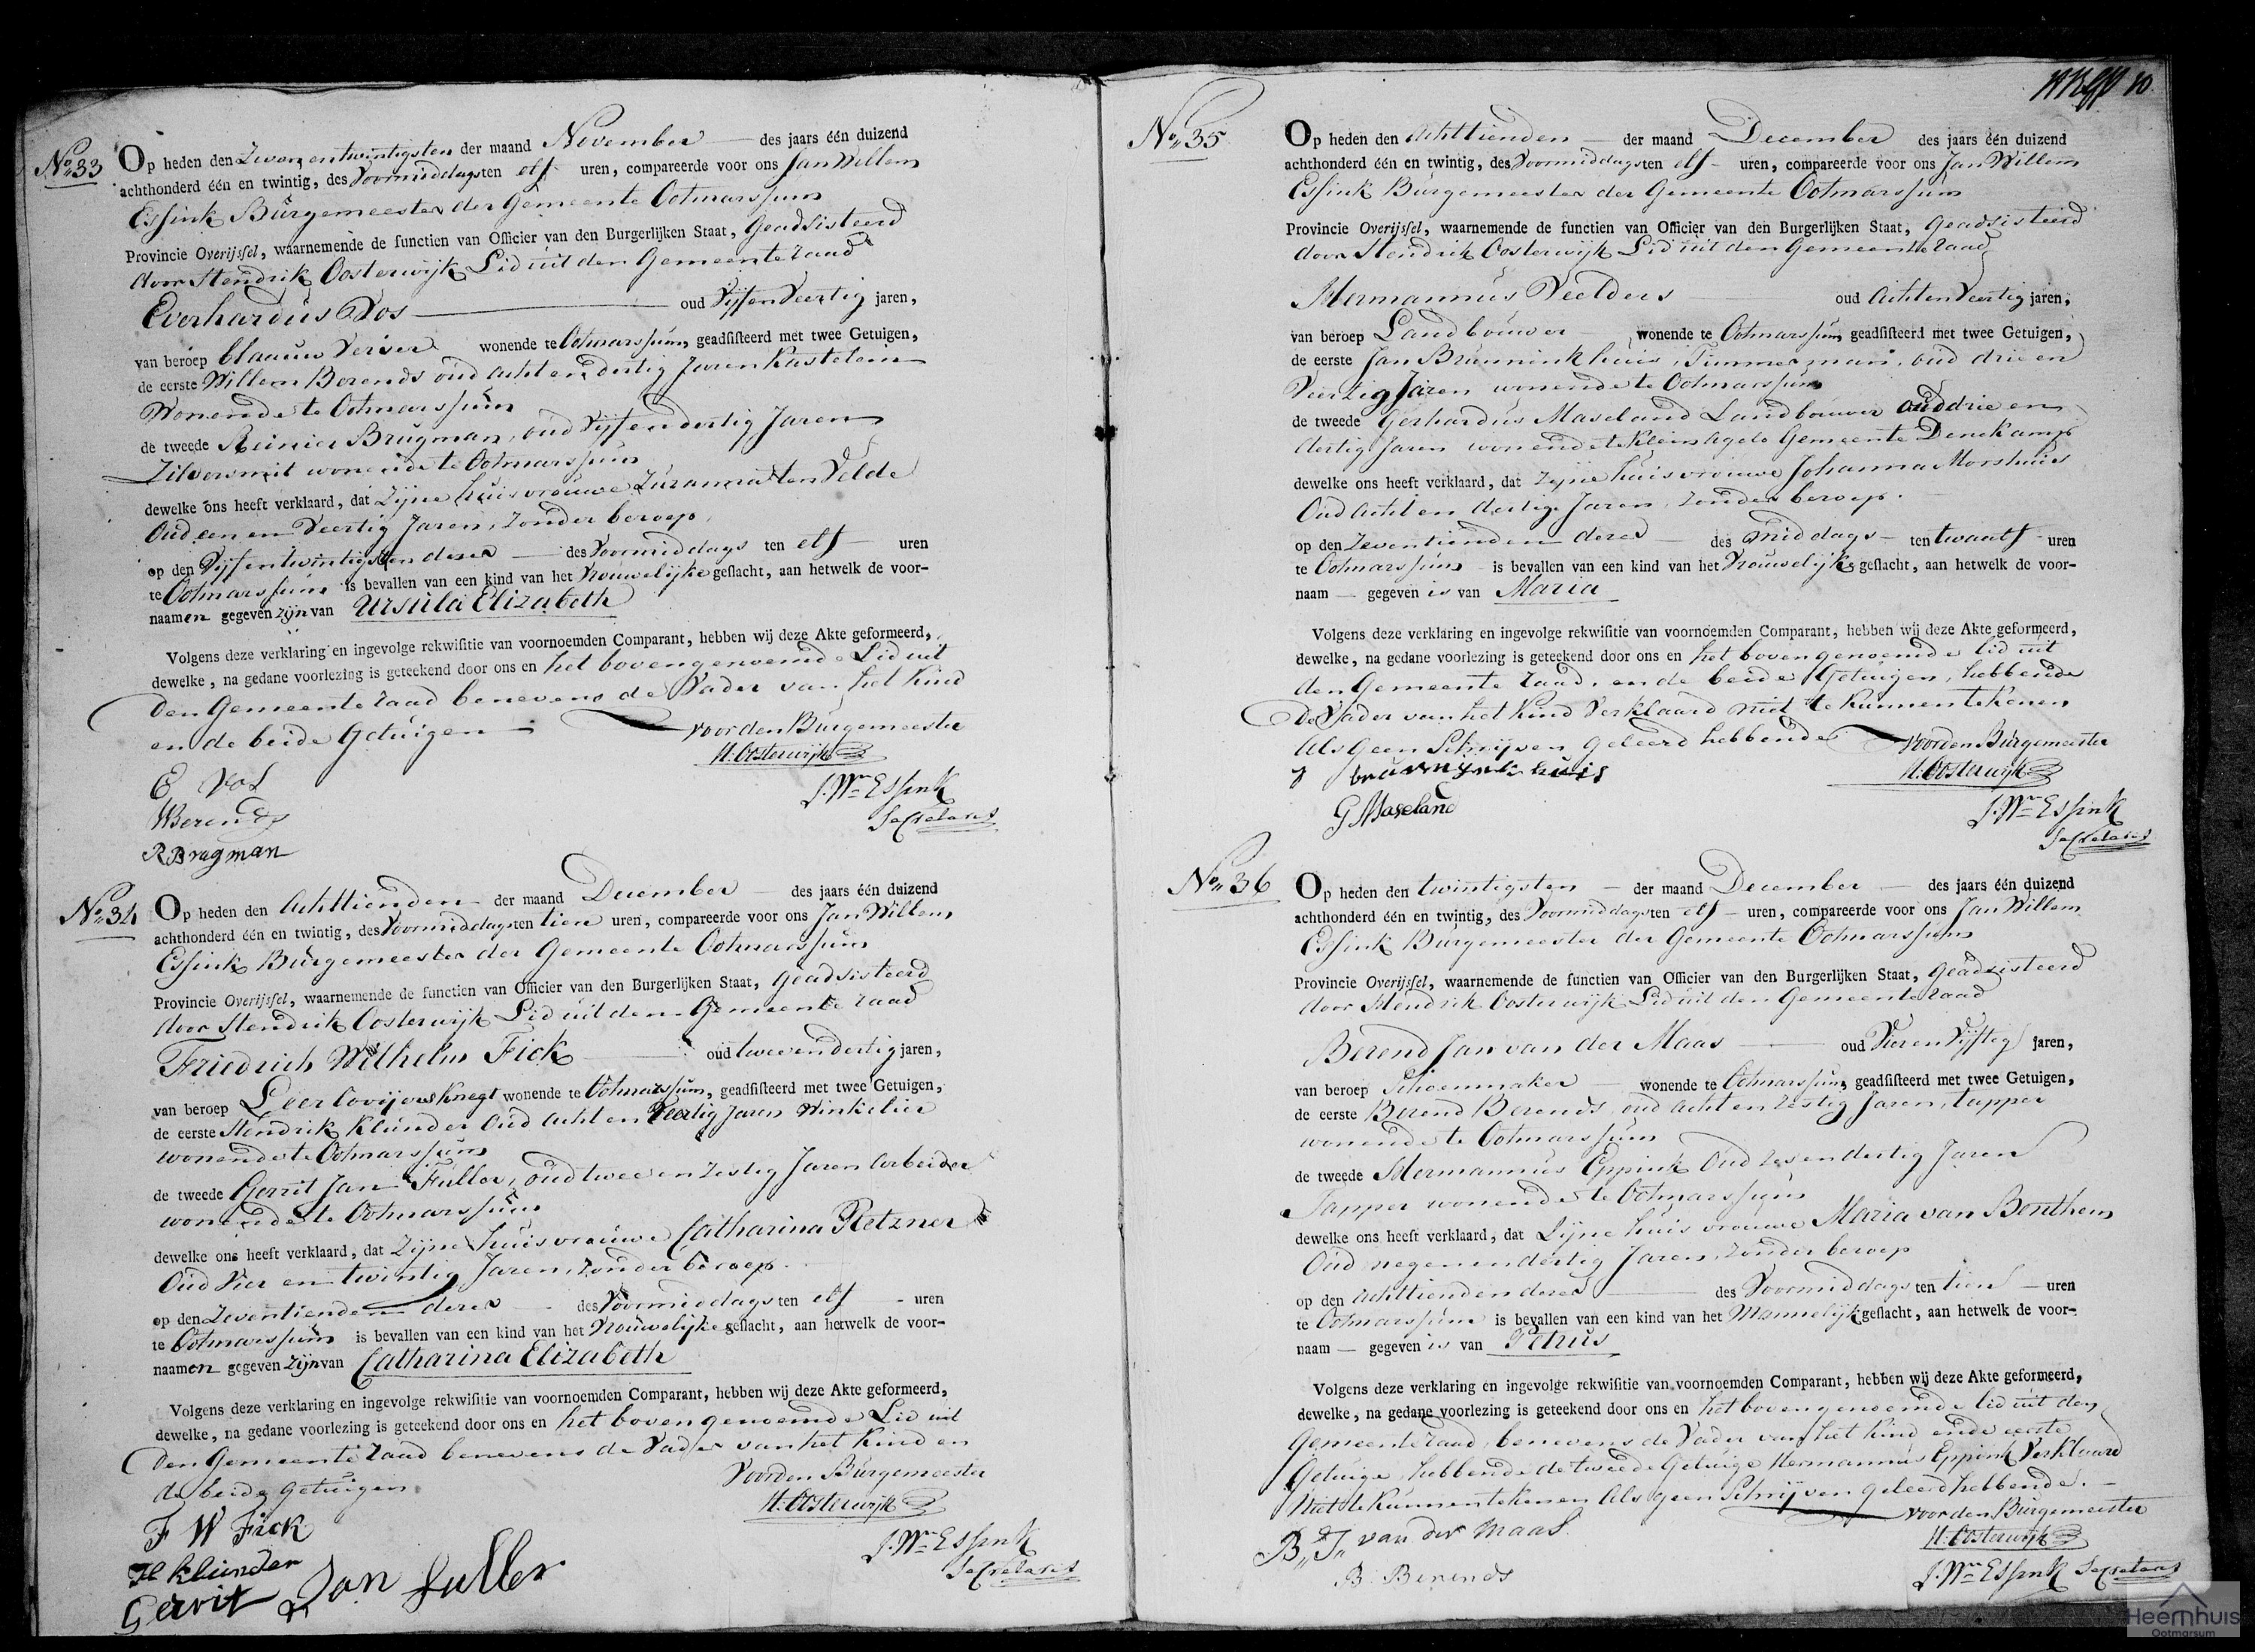 No. 33
Op heden den Zevenentwintigsten der maand November des jaars één duizend
achthonderd één en twintig, des Voormiddags ten elf uren, compareerde voor ons Jan Willem
Essink Burgemeester der Gemeente Ootmarssum
Provincie Overijssel, waarnemende de functien van Officier van den Burgerlijken Staat, Geadsisteerd
door Hendrik Oosterwijk Lid uit den Gemeente raad
Everhardus Vos oud Vijf en Veertig jaren,
van beroep blaauw Verver wonende te Ootmarssum, geadsisteerd met twee Getuigen,
de eerste Willem Berends oud acht en dertig Jaren Kastelein
Wonende te Ootmarssum
de tweede Reinier Brugman, oud Vijf en dertig Jaren
Zilversmit wonende te Ootmarssum
dewelke ons heeft verklaard, dat Zijne huisvrouwe Zuzanna ten Velde
Oud een en Veertig Jaren, zonder beroep,
op den Vijfentwintigsten dezer des Voormiddags ten elf uren
te Ootmarssum is bevallen van een kind van het Vrouwelijke geslacht, aan hetwelk de voor-
naamen gegeven zijn van Ursula Elizabeth
Volgens deze verklaring en ingevolge rekwisitie van voornoemden Comparant, hebben wij deze Akte geformeerd,
dewelke, na gedane voorlezing is geteekend door ons en het bovengenoemde Lid uit
den Gemeente raad benevens de Vader van het Kind
en de beide Getuigen
Voor den Burgemeester
H: Oosterwijk
E Vos
J. Wm Essink
WBerends
Secretaris
R Brugman
No. 34
Op heden den Achttienden der maand December des jaars één duizend
achthonderd één en twintig, des Voormiddags ten tien uren, compareerde voor ons Jan Willem
Essink Burgemeester der Gemeente Ootmarssum
Provincie Overijssel, waarnemende de functien van Officier van den Burgerlijken Staat, Geadsisteerd
door Hendrik Oosterwijk Lid uit den Gemeente raad
Friedrich Wilhelm Fick oud twee en dertig jaren,
van beroep Leerlooijersknegt wonende te Ootmarssum, geadsisteerd met twee Getuigen,
de eerste Hendrik Klunder Oud acht en Veertig Jaren Winkelier
wonende te Ootmarssum
de tweede Gerrit Jan Fuller, oud twee en zestig Jaren Arbeider
wonende te Ootmarssum
dewelke ons heeft verklaard, dat Zijne huisvrouwe Catharina Pletzner
Oud Vier en twintig Jaren, zonder beroep.
op den Zeventienden dezer des Voormiddags ten elf uren
te Ootmarssum is bevallen van een kind van het Vrouwelijke geslacht, aan hetwelk de voor-
naamen gegeven zijn van Catharina Elizabeth
Volgens deze verklaring en ingevolge rekwisitie van voornoemden Comparant, hebben wij deze Akte geformeerd,
dewelke, na gedane voorlezing is geteekend door ons en het bovengenoemde Lid uit
den Gemeente raad benevens de Vader van het Kind en
de beide Getuigen
Voor den Burgemeester
H: Oosterwijk
F W Fick
J. Wm Essink
H klunder
Secretaris
Gerrit Jan fuller
10
No. 35
Op heden den Achttienden der maand December des jaars één duizend
achthonderd één en twintig, des Voormiddags ten elf uren, compareerde voor ons Jan Willem
Essink Burgemeester der Gemeente Ootmarssum
Provincie Overijssel, waarnemende de functien van Officier van den Burgerlijken Staat, Geadsisteerd
door Hendrik Oosterwijk Lid uit den Gemeente raad
Hermannus Veelders oud Acht en Veertig jaren,
van beroep Landbouwer wonende te Ootmarssum geadsisteerd met twee Getuigen,
de eerste Jan Brunninkhuis, Timmerman, oud drie en
Veertig Jaren wonende te Ootmarssum
de tweede Gerhardus Maseland Landbouwer oud drie en
dertig Jaren wonende te Klein Agelo Gemeente Denekamp
dewelke ons heeft verklaard, dat zijne huisvrouwe Johanna Morshuis
Oud acht en dertig Jaren, zonder beroep.
op den Zeventienden dezer des Middags ten twaalf uren
te Ootmarssum is bevallen van een kind van het Vrouwelijke geslacht, aan hetwelk de voor-
naam gegeven is van Maria
Volgens deze verklaring en ingevolge rekwisitie van voornoemden Comparant, hebben wij deze Akte geformeerd,
dewelke, na gedane voorlezing is geteekend door ons en het bovengenoemde lid uit
den Gemeente raad, en de beide Getuigen, hebbende
de Vader van het Kind Verklaard niet te kunnen tekenen
Als Geen Schrijven Geleerd hebbende
Voor den Burgemeester
H: Oosterwijk
J brunnynkhuis
G Maseland
J. Wm Essink
Secretaris
No. 36
Op heden den twintigsten der maand December des jaars één duizend
achthonderd één en twintig, des Voormiddags ten elf uren, compareerde voor ons Jan Willem
Essink Burgemeester der Gemeente Ootmarssum
Provincie Overijssel, waarnemende de functien van Officier van den Burgerlijken Staat, Geadsisteerd
door Hendrik Oosterwijk Lid uit den Gemeente raad
Berend Jan van der Maas oud Vier en Vijftig jaren,
van beroep Schoenmaker wonende te Ootmarssum geadsisteerd met twee Getuigen,
de eerste Berend Berends, oud acht en zestig Jaren, tapper
wonende te Ootmarssum
de tweede Hermannus Eppink Oud zes en dertig Jaren
Tapper wonende te Ootmarssum
dewelke ons heeft verklaard, dat Zijne huisvrouwe Maria van Benthem
Oud negen en dertig Jaren, zonder beroep
op den Achttienden dezer des Voormiddags ten tien uren
te Ootmarssum is bevallen van een kind van het Mannelijk geslacht, aan hetwelk de voor-
naam gegeven is van Petrus
Volgens deze verklaring en ingevolge rekwisitie van voornoemden Comparant, hebben wij deze Akte geformeerd,
dewelke, na gedane voorlezing is geteekend door ons en het bovengenoemde lid uit den
Gemeente raad, benevens de Vader van het Kind en de eerste
Getuige, hebbende de tweede Getuige Hermannus Eppink Verklaard
Niet te kunnen tekenen Als geen Schrijven geleerd hebbende.
Voor den Burgemeester
H: Oosterwijk
B,, J,, van der Maas
B: Berends
J. Wm Essink Secretaris
Heemhuis
Ootmarsum